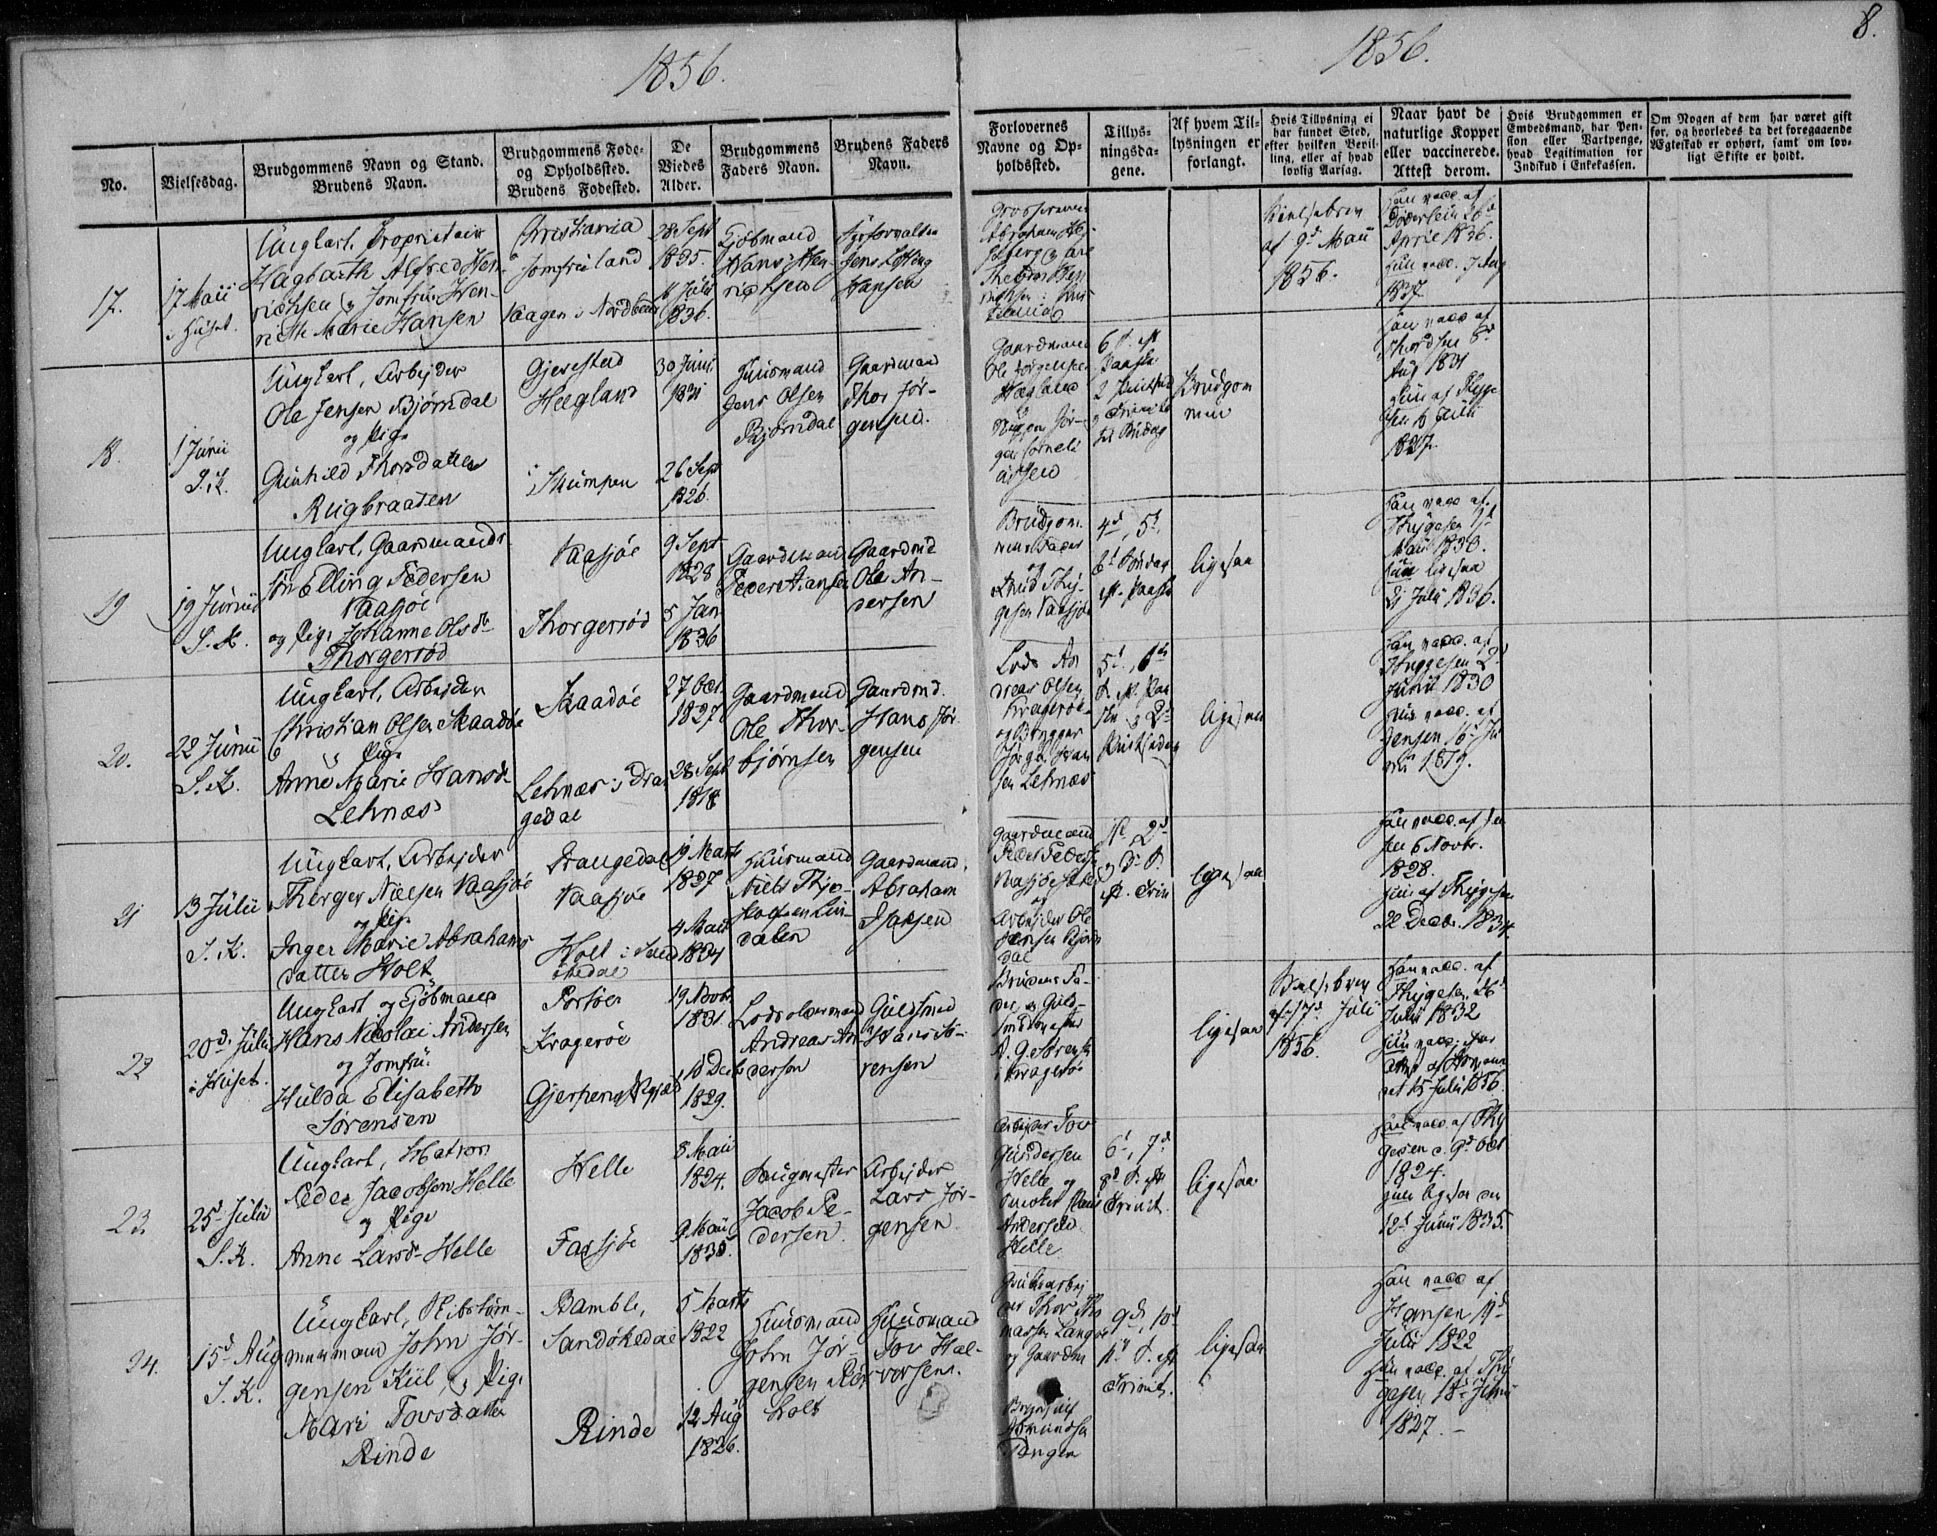 1856.
1856.
8.
No.
Vielsesdag.
Brudgommens Navn og Stand.
Brudens Navn.
Brudgommens Føde-
og Opholdssted.
Brudens Fødested.
De
Viedes
Alder.
Brudgommens
Faders Navn.
Brudens Faders
Navn.
Forlovernes
Navne og Op-
holdssted.
Tillys-
ningsda-
gene.
Af hvem Til-
lysningen er
forlangt.
Hvis Tillysning ei
har fundet Sted,
efter hvilken Bevil-
ling, eller af hvad
lovlig Aarsag.
Naar havt de
naturlige Kopper
eller vaccinerede.
Attest derom.
Hvis Brudgommen er
Embedsmand, har Pen-
sion eller Vartpenge,
hvad Legitimation for
Indskud i Enkekassen.
Om Nogen af dem har været gift
før, og hvorledes da det foregaaende
Ægteskab er ophørt, samt om lov-
ligt Skifte er holdt.
17.
17 Maii
i Huset.
Ungkarl, Proprietair
Hagbarth Alfred Hen-
richsen og Jomfru Hen-
riette Marie Hansen
Christiania
Jomfruland
Vaagen i Nordland
28 Sept
1835.
16 Julii
1836.
Kjøbmand
Hans Hen-
richsen
Fyrforvalter
Jens
Hansen
Abraham
af 9d Maii
1856.
Han vacc. af
26d
April 1836.
Hun vacc. 7 Aug
1837.
18.
1 Junii
S. K.
Ungkarl, Arbejder
Ole Jensen Bjørndal
og Pige
Gunhild Thorsdatter
Rugbraaten
Gjerestad
Hegland
i Skumpen
30 Junii
1831
26 Sept
1826.
Huusmand
Jens Olsen
Bjørndal
Gaardmand
Thor Jør-
gensen.
Gaardmand
Ole Jørgensen
Hegland
og
6 S. eft
Paaske
Brudgom
men
Han vacc af
Thordsen 6d
Aug 1831
Hun af Thyge
sen
1827.
19
19 Junii
S. K.
Ungkarl, Gaardmands
søn Elling Pedersen
Vaasjøe
og Pige Johanne Olsd.
Thorgersrød
Vaasjøe
Thorgersrød
9 Sept
1828
5 Jan
1836
Gaardmand
Peder Hansen
Gaardmd
Ole An-
dersen
Brudgom-
mens Fader
og
Knud Thy-
gesen Vaasjøe
4d, 5d,
6d Søndag
eft. Paaske
ligesaa
Han vacc af.
Thygesen
Maii 1830.
Hun ligesaa
Julii 1836.
20.
22 Junii
S. K.
Ungkarl, Arbejder
Christian Olsen Skaadøe
og Pige
Anne Marie Hansd.
Lehnæs
Skaadøe
Lehnæs i Dran
gedal
27 Oct.
1827
28 Sept
1818
Gaardmand
Ole Thor-
bjørnsen
Gaardmd.
Hans Jør-
gensen
Lods An
dreas Olsen
Kragerøe
og Brygger
Jørgen Han
sen Lehnæs
5d, 6d
S. eft. Paa
ske og 2d
Pintsedag
ligesaa
Han vacc. af
Thygesen 2d
Junii 1830
Hun vacc. af
Jensen 16 Ju
nii 1819.
21
13 Julii
S. K.
Ungkarl, Arbejder
Therger Nielsen Vaasjøe
og Pige
Inger Marie Abrahams
datter Holt
Drangedal
Vaasjøe
Holt i Sand
økedal
19 Marts
1827
4 Marts
1834
Huusmand
Niels Thjo-
stolfsen Lin-
dalen
Gaardmand
Abraham
Isaksen
Gaardmand
Peder Peders
og
Arbejder Ole
Jensen Bjørn
dal
1d, 2d
og 3d S.
eft. Trin
ligesaa
Han vacc. af Jen
sen 6 Novbr.
1828.
Hun af Thygesen
22 Decbr. 1834.
22
20d Julii
i Huset.
Ungkarl og Kjøbmand
Hans Nicolai Andersen
og Jomfru
Hulda Elisabeth
Sørensen
Portøer
Kragerøe
Gjerpen
19 Novbr
1831
10 Dec
1829.
Lodsoldermand
Andreas An-
dersen
Guldsmed
Hans Sø-
rensen
Brudens Fa-
der, og Guld-
smedmester
A. G. Sørensen
i Kragerøe
ligesaa
af 17d Julii
1856.
Han vacc. af
Thygesen 26d
Julii 1832
Hun vacc.
15 Julii 1856.
23.
25d Julii
S. K.
Ungkarl, Matros
Peder Jacobsen Helle
og Pige
Anne Larsd. Helle
Helle
Farsjøe
8 Maii
1824.
9 Maii
1835.
Baugmester
Jacob Pe-
dersen.
Arbejder
Lars Jør-
gensen.
Arbejder Tov
Gundersen
Helle og
Andersen
Helle.
6d, 7d
8d S. eft
Trinit.
ligesaa
Han vacc. af Thy
gesen d. 9d Oct
1824.
Hun ligesaa den
12d Junii 1835.
24.
15d Aug
S. K.
Ungkarl, Skibstøm-
mermand John Jør-
gensen Kiil, og Pige
Mari Tovsdatter
Rinde
Bamble,
Sandøkedal
Rinde
5 Marts
1822
12 Aug
1826.
Huusmand
John Jør-
gensen Rør
holt
Huusmand
Tov Hal-
vorsen.
Thor Tho
massen Langøe
og Gaardm
Brynjulf
Amundsen
Tangen
9d, 10d
11d S. eft
Trinit.
ligesaa
Han vacc af
Hansen 11d
Julii 1822
Hun vacc. af Thy
gesen 18d Junii
1827.